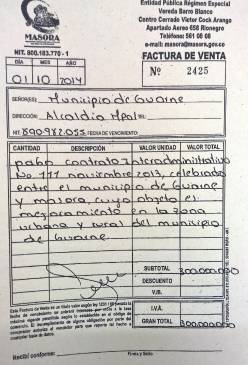 Entidad Pública Régimen Especial
Vereda Barro Blanco
Centro Cerrado Victor Cock Arango
Apartado Aereo 656 Rionegro
Teléfono: 561 08 08
e-mail: masora@masora.gov.co
MASORA
NIT. 800.183.770 - 1
FACTURA DE VENTA
DÍA MES AÑO
01 10 2014
Nº 2425
SEÑOR(ES): Municipio de Guarne
DIRECCIÓN: Alcaldia Mpal
NIT. 890982055 FECHA DE VENCIMIENTO:
CANTIDAD DESCRIPCIÓN VALOR UNIDAD VALOR TOTAL
pago contrato Interadministrativo
No 111 noviembre 2013, celebrado
entre el municipio de Guarne
y masora, cuyo objeto el
mejoramiento en la zona
urbana y rural del municipio
de Guarne.
SUBTOTAL 300.000.000
DESCUENTO
VR.
I.V.A.
GRAN TOTAL 300.000.000
Esta Factura de Venta es un título valor según ley
Recibí conforme:
Firma y Sello